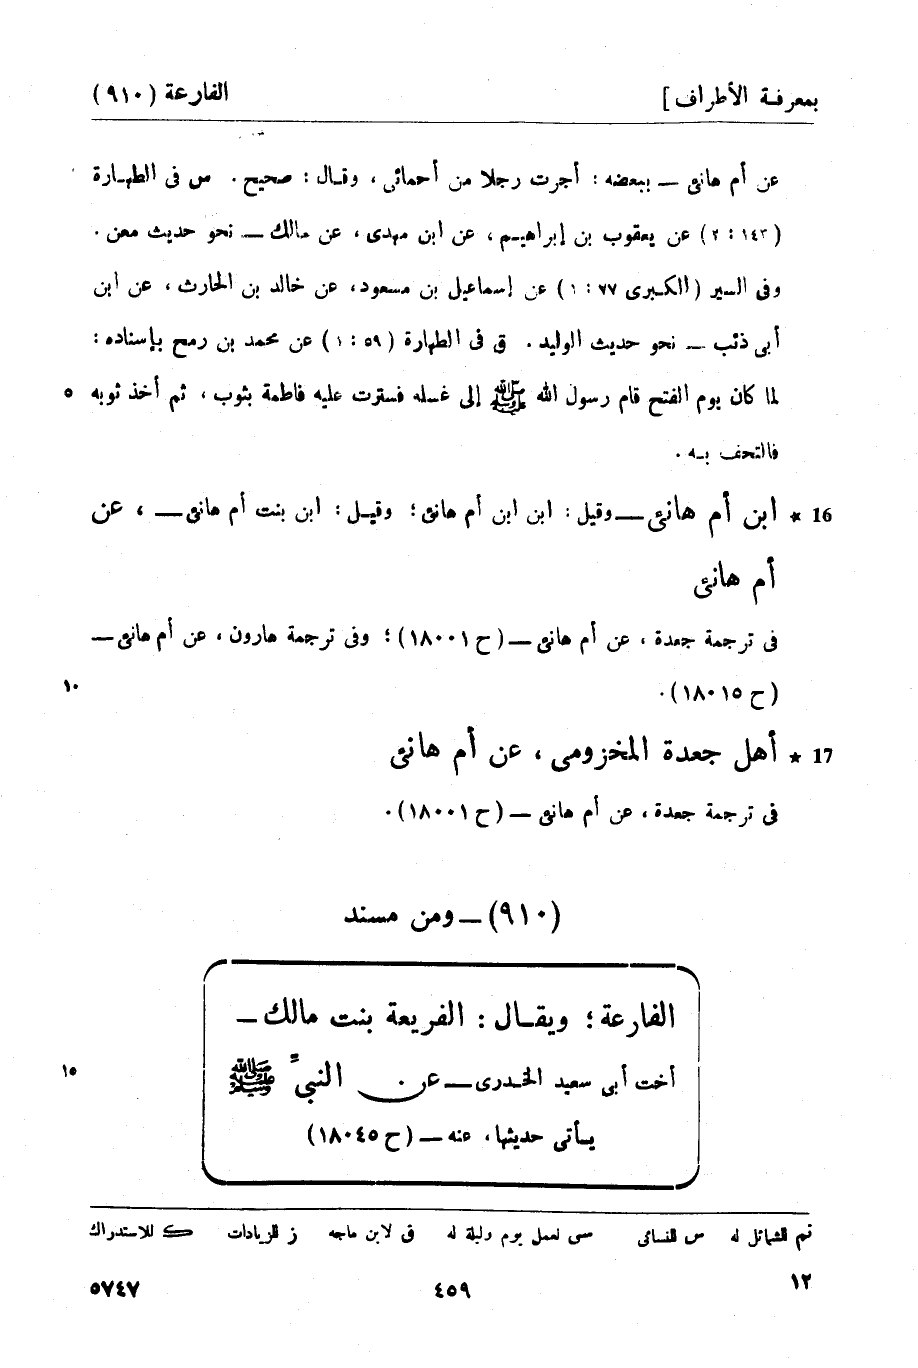 بمعرفة الأطراف ] الفارعة (٩١٠)
عن أم هانئ ــ ببعضه : أجرت رجلا من أحمائى ، وقال : صحيح . س فى الطهارة
(١٤٣ : ٢) عن يعقوب بن إبراهيم ، عن ابن مهدى ، عن مالك ــ نحو حديث معن .
وفى السير (الكبرى ٧٧ : ١) عن إسماعيل بن مسعود، عن خالد بن الحارث ، عن ابن
أبى ذئب ــ نحو حديث الوليد . ق فى الطهارة (٥٩ : ١) عن محمد بن رمح بإسناده :
لما كان يوم الفتح قام رسول الله ﷺ إلى غسله فسترت عليه فاطمة بثوب ، ثم أخذ ثوبه ٥
فالتحف به .
16 * ابن أم هانئ ــ وقيل : ابن ابن أم هانئ ؛ وقيل : ابن بنت أم هانئ ــ ، عن
أم هانئ
فى ترجمة جعدة ، عن أم هانئ ــ (ح ١٨٠٠١) ؛ وفى ترجمة هارون ، عن أم هانئ ــ
(ح ١٨٠١٥) . ١٠
17 * أهل جعدة المخزومى ، عن أم هانئ
فى ترجمة جعدة ، عن أم هانئ ــ (ح ١٨٠٠١) .
(٩١٠) ــ ومن مسند
الفارعة ؛ ويقال : الفريعة بنت مالك ــ
أخت أبى سعيد الخدرى ــ عن النبى ﷺ ١٥
يأتى حديثها، عنه ــ (ح ١٨٠٤٥)
تم للشمائل له س للنسائى سى لعمل يوم وليلة له ق لابن ماجه ز للزيادات ك للاستدراك
١٢ ٤٥٩ ٥٧٤٧